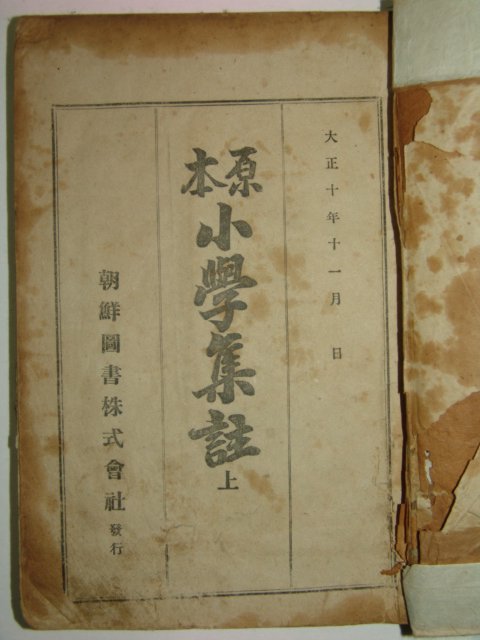 大正十年十一月　日
原本
小學集註 上
朝鮮圖書株式會社 發行